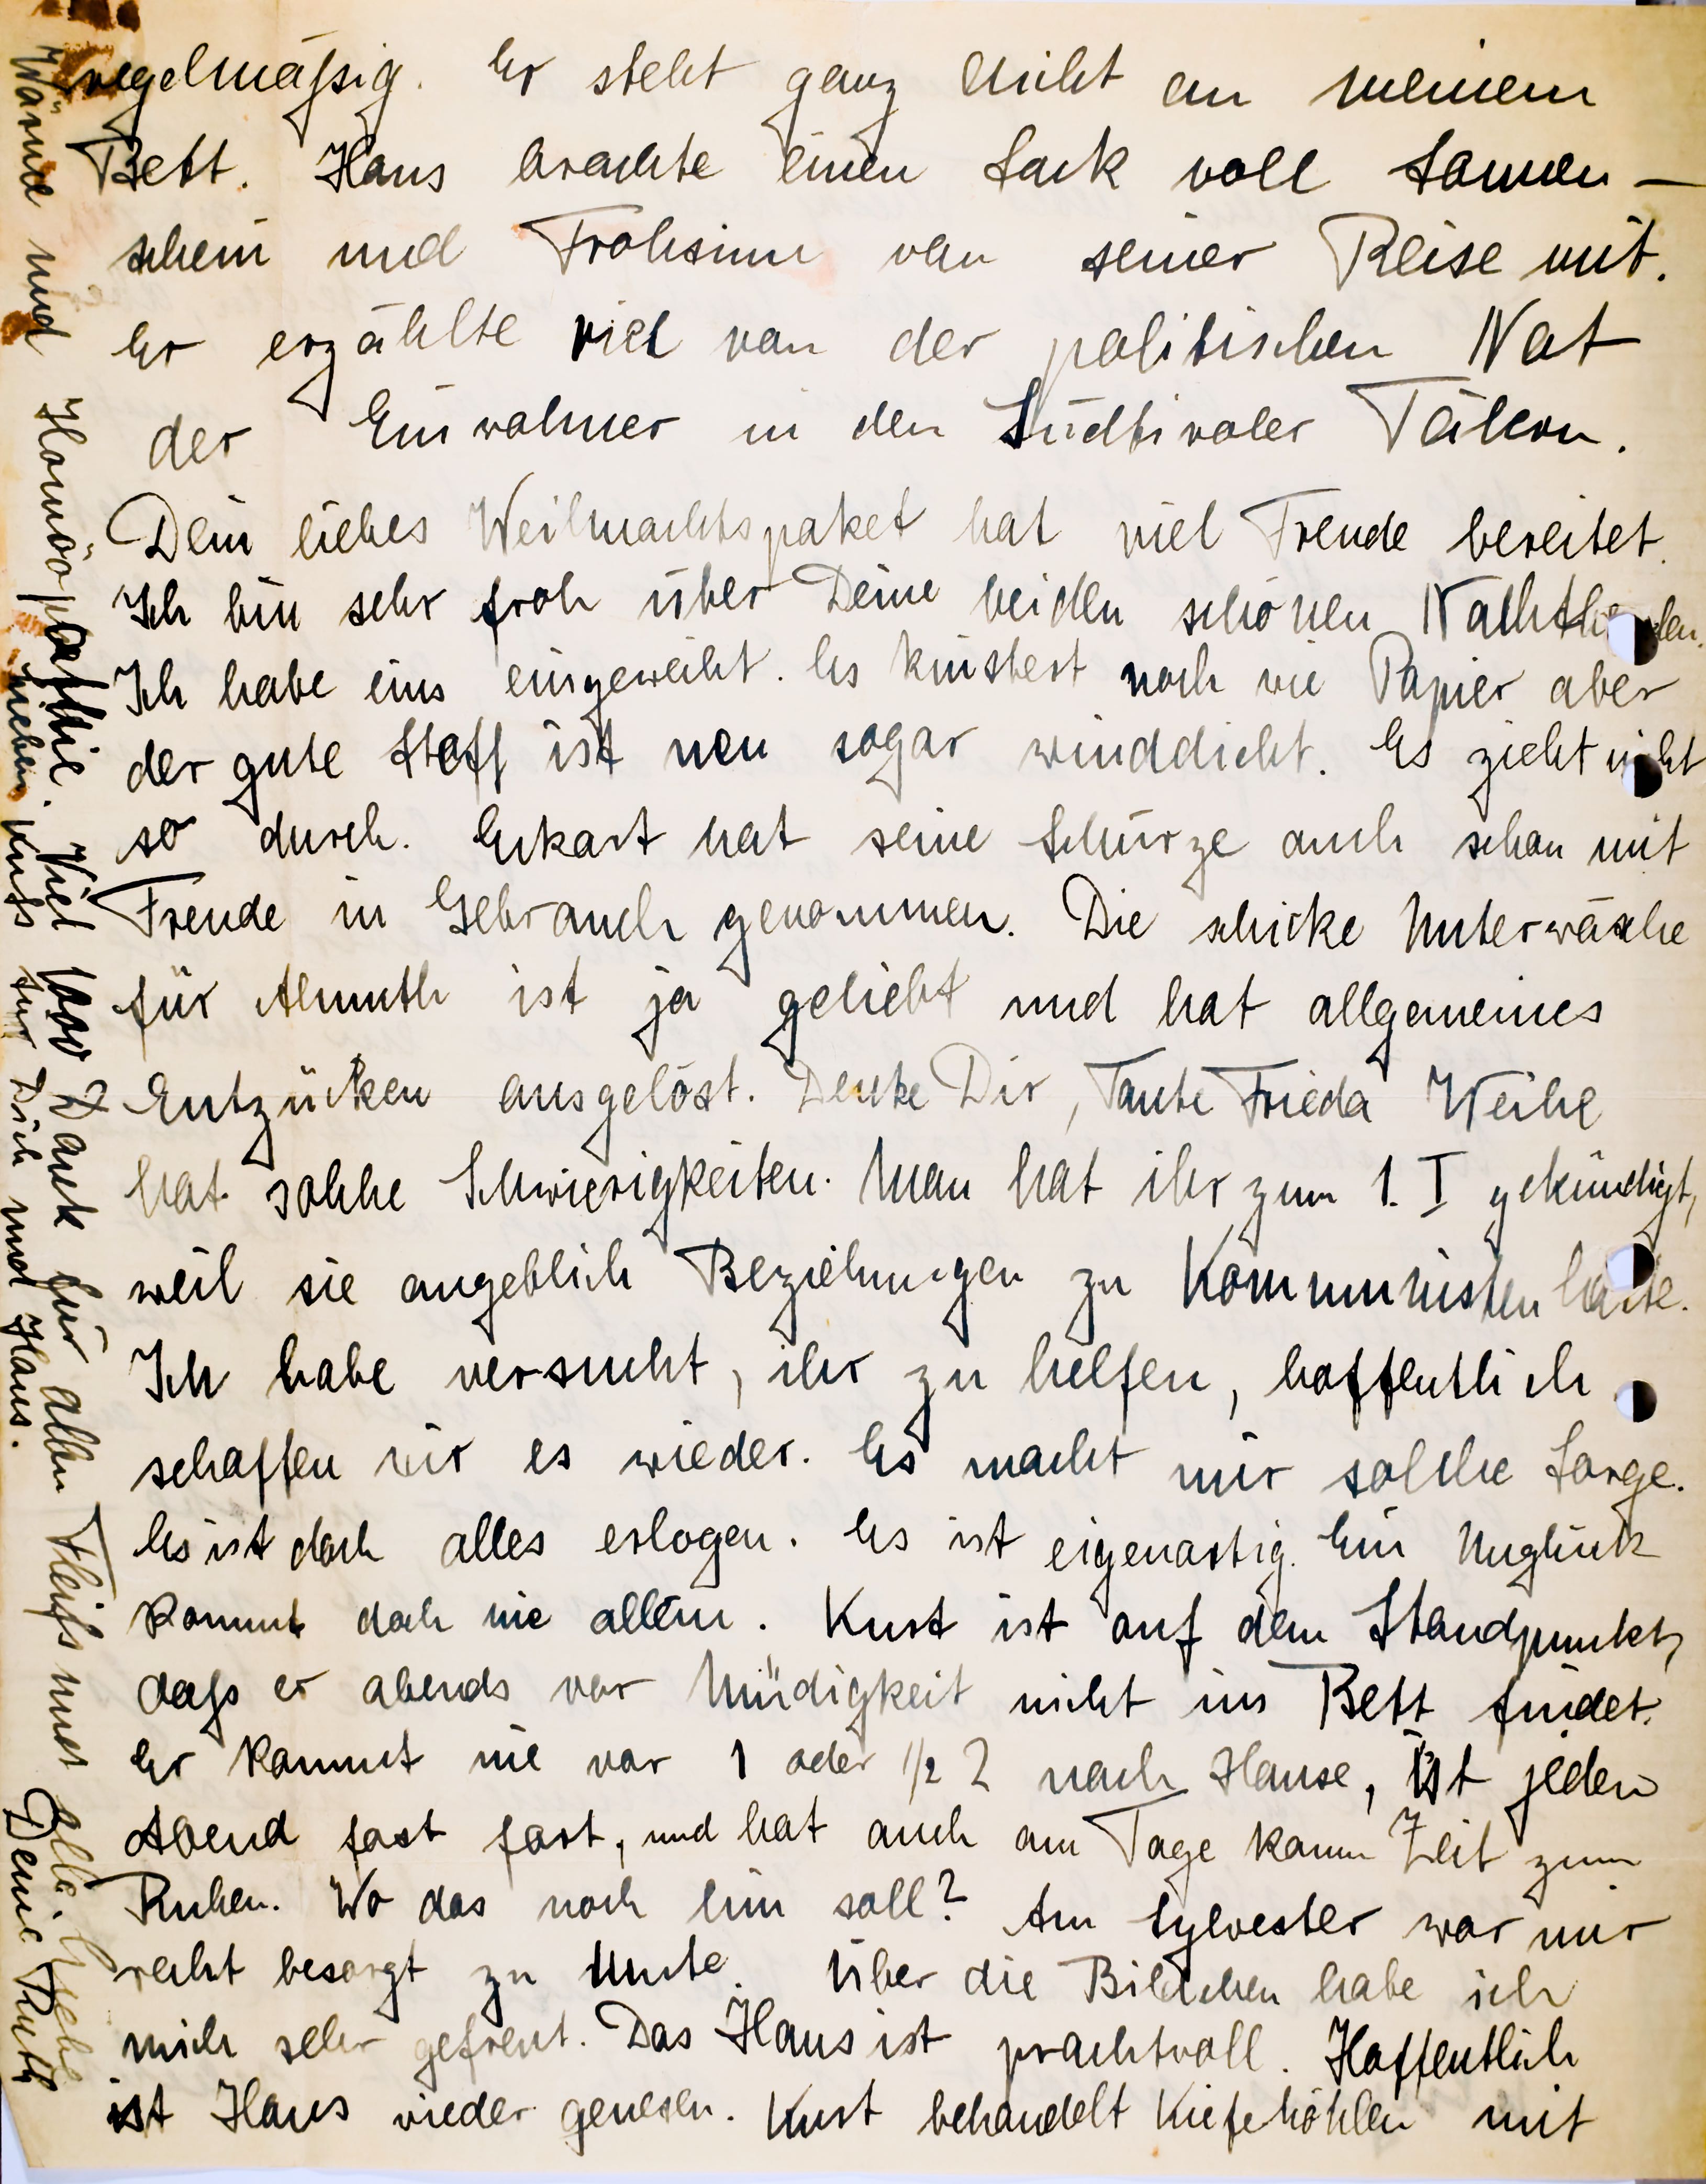 regelmäßig. Er steht ganz dicht an meinem
Bett. Hans brachte einen Sack voll Sonnen-
schein und Frohsinn von seiner Reise mit.
Er erzählte viel von der politischen Not
der Einwohner in den Südtiroler Tälern.
Dein liebes Weihnachtspaket hat viel Freude bereitet.
Ich bin sehr froh über Deine beiden schönen
Ich habe eins eingeweiht. Es knistert noch wie Papier aber
der gute Stoff ist neu sogar winddicht. Es zieht nicht
so durch. Eckart hat seine Schürze auch schon mit
Freude in Gebrauch genommen. Die schicke Unterwäsche
für Almuth ist ja geliebt und hat allgemeines
Entzücken ausgelöst. Denke Dir, Tante Frieda Weihe
hat solche Schwierigkeiten. Man hat ihr zum 1. I gekündigt,
weil sie angeblich Beziehungen zu Kommunisten hätte.
Ich habe versucht, ihr zu helfen, hoffentlich
schaffen wir es wieder. Es macht mir solche Sorge.
Es ist doch alles erlogen. Es ist eigenartig. Ein Unglück
kommt doch nie allein. Kurt ist auf dem Standpunkt,
daß er abends vor Müdigkeit nicht ins Bett findet.
Er kommt nie vor 1 oder 1/2 2 nach Hause, ist jeden
Abend fast fort, und hat auch am Tage kaum Zeit zum
Ruhen. Wo das noch hin soll? Am Sylvester war mir
recht besorgt zu Mute. Über die Bildchen habe ich
mich sehr gefreut. Das Haus ist prachtvoll. Hoffentlich
ist Hans wieder genesen. Kurt behandelt Kieferhöhlen mit
Wärme und Homöopathie. Viel 1000 Dank für allen Fleiß und alle Liebe
lieben Kuß für Dich und Hans. Deine Ruth